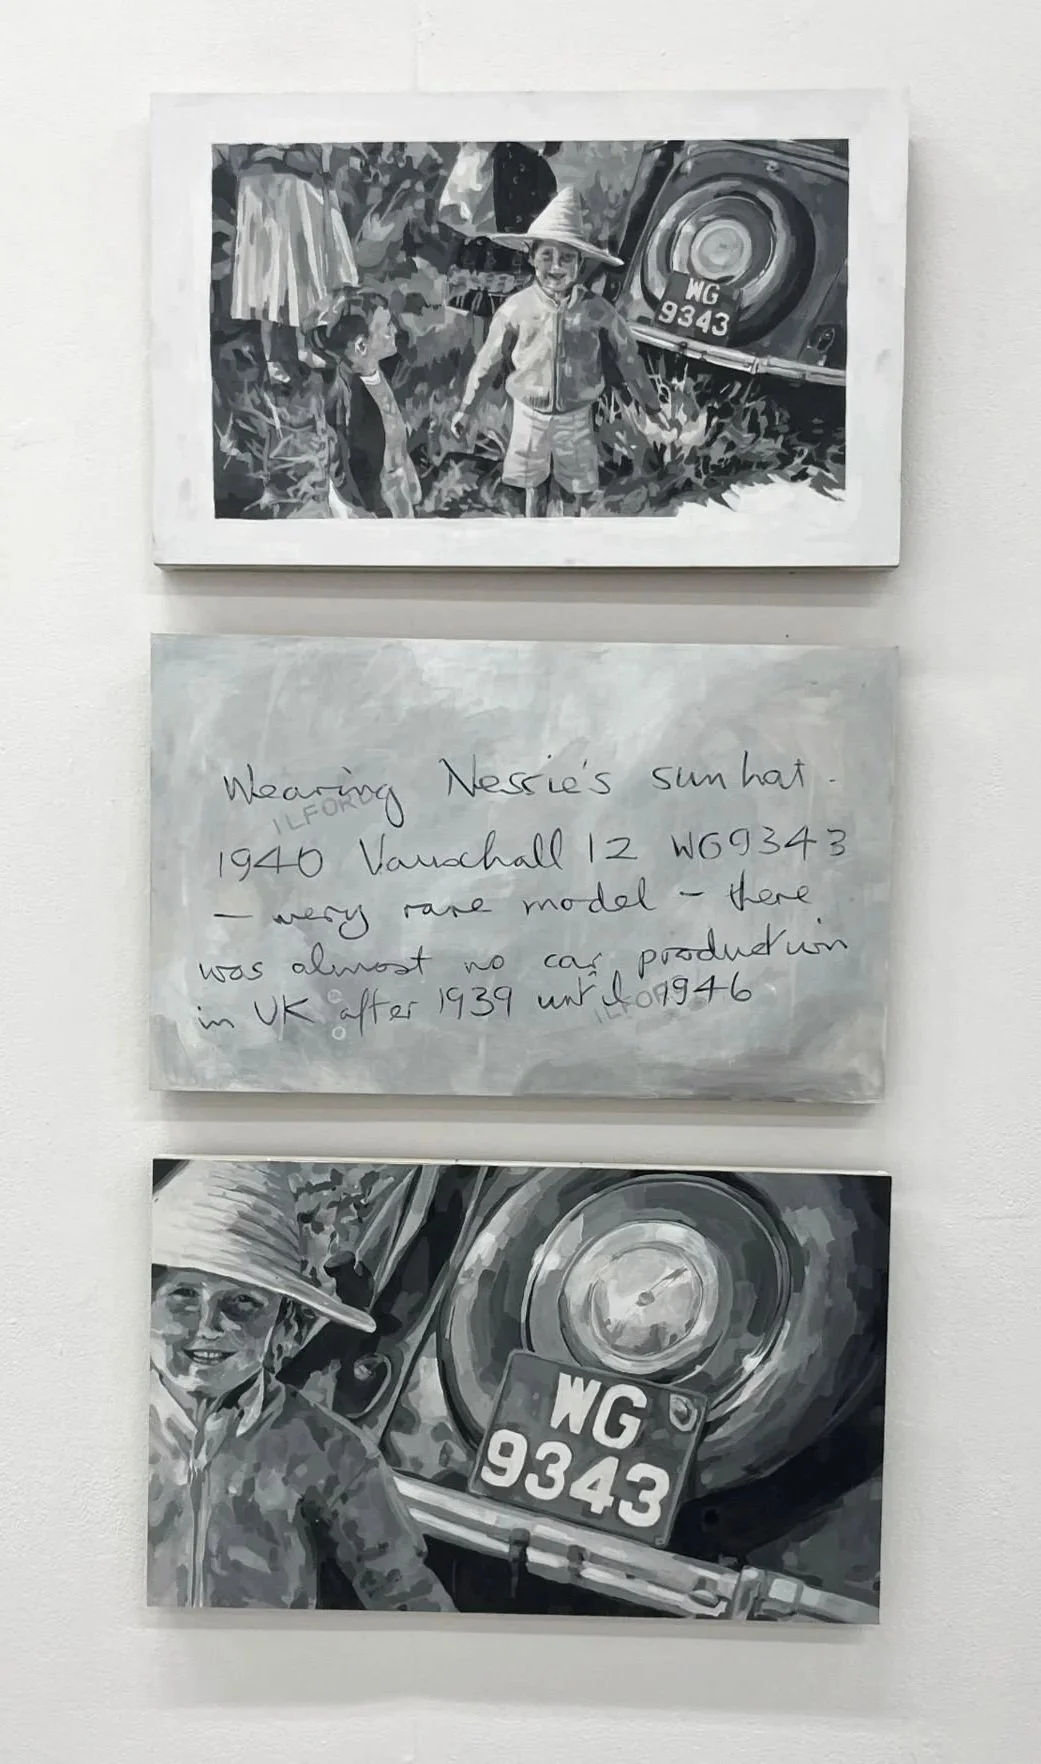 WG
9343
Wearing Nessie's sun hat.
ILFORD
1940 Vauxhall 12 WG9343
— very rare model – there
was almost no car production
in UK after 1939 until 1946
ILFO
WG
9343